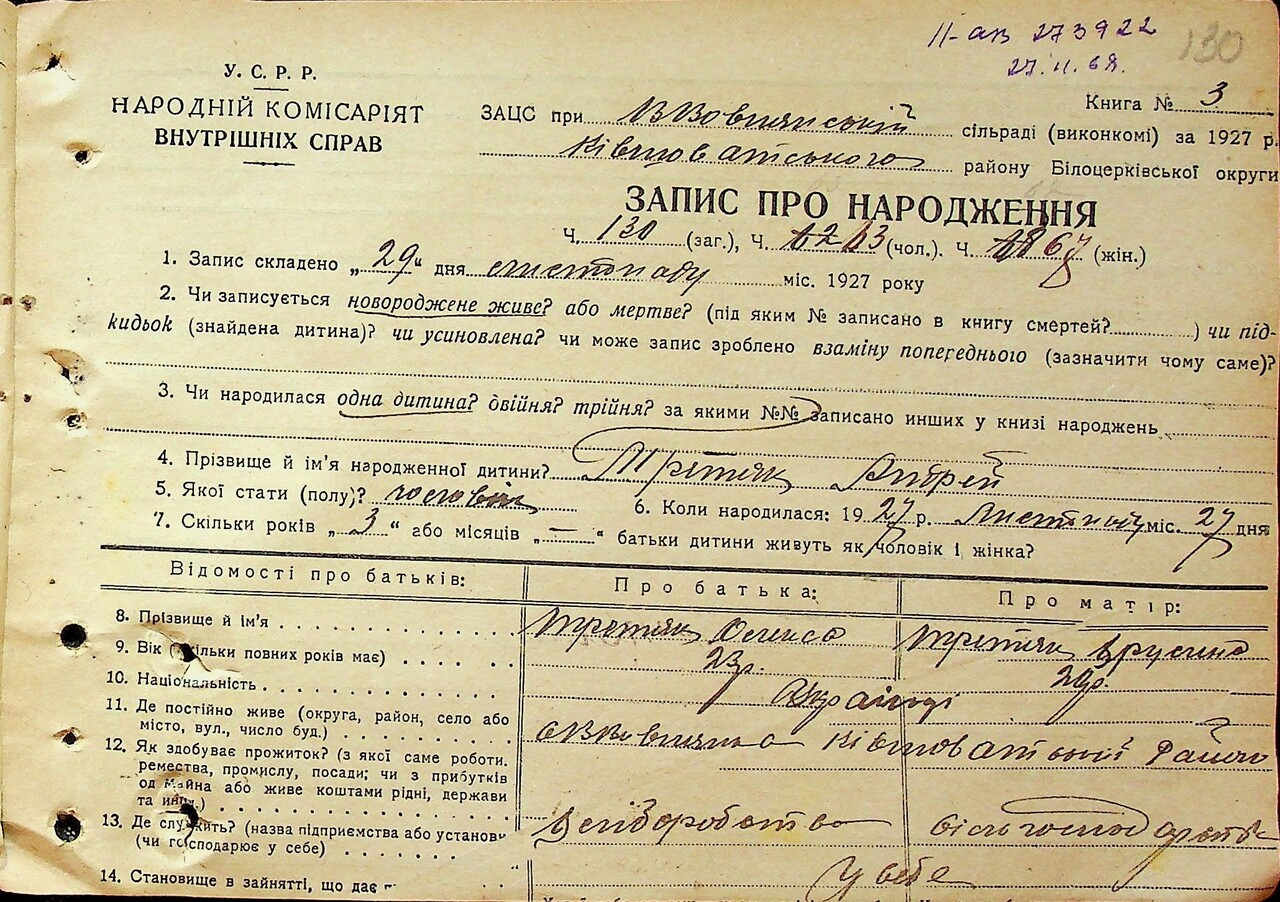 ІІ-ав 273922
27.11.68. 130
У. С. Р. Р.
НАРОДНІЙ КОМІСАРІЯТ
ВНУТРІШНІХ СПРАВ
Книга № 3
ЗАЦС при сільраді (виконкомі) за 1927 р.
району Білоцерківської округи
ЗАПИС ПРО НАРОДЖЕННЯ
Ч. 130 (заг.), Ч. 63 (чол.). Ч. 67 (жін.)
1. Запис складено „ 29 “ дня листопаду міс. 1927 року
2. Чи записується новороджене живе? або мертве? (під яким № записано в книгу смертей? ) чи під-
кидьок (знайдена дитина)? чи усиновлена? чи може запис зроблено взаміну попереднього (зазначити чому саме)?
3. Чи народилася одна дитина? двійня? трійня? за якими №№ записано инших у книзі народжень
4. Прізвище й ім’я народженної дитини? Третяк Андрей
5. Якої стати (полу)? 6. Коли народилася: 1927 р. Листопаду міс. 27 дня
7. Скільки років „ 3 “ або місяців „ — “ батьки дитини живуть як чоловік і жінка?
Відомості про батьків: Про батька: Про матір:
8. Прізвище й ім’я Третяк Третяк
9. Вік (скільки повних років має) 23р. 20р.
10. Національність Українці
11. Де постійно живе (округа, район, село або
місто, вул., число буд.) району
12. Як здобуває прожиток? (з якої саме роботи.
ремества, промислу, посади; чи з прибутків
од майна або живе коштами рідні, держави
та инш.)
13. Де служить? (назва підприємства або установи
(чи господарює у себе) хліборобство
14. Становище в зайнятті, що дає у себе